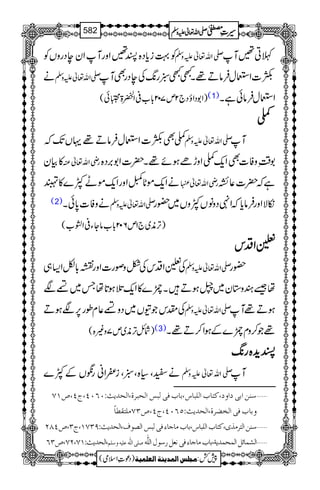 سیرتِ مصطفیٰ صلی اللہ تعالیٰ علیہ وسلم 582
کہلاتی تھیں آپ صلی اللہ تعالیٰ علیہ وسلم کو بہت زیادہ پسند تھیں اور آپ ان چادروں کو
بکثرت استعمال فرماتے تھے۔ کبھی کبھی سبز رنگ کی چادر بھی آپ صلی اللہ تعالیٰ علیہ وسلم نے
استعمال فرمائی ہے۔ (1) (ابوداؤد ج۲ ص۲۰۷ باب فی الخضرۃ مجتبائی)
کملی
آپ صلی اللہ تعالیٰ علیہ وسلم کملی بھی بکثرت استعمال فرماتے تھے یہاں تک کہ
بوقتِ وفات بھی ایک کملی اوڑھے ہوئے تھے۔ حضرت ابوبردہ رضی اللہ تعالیٰ عنہ کا بیان
ہے کہ حضرت عائشہ رضی اللہ تعالیٰ عنہا نے ایک موٹا کمبل اور ایک موٹے کپڑے کا تہبند
نکالا اور فرمایا کہ انہی دونوں کپڑوں میں حضور صلی اللہ تعالیٰ علیہ وسلم نے وفات پائی۔ (2)
(ترمذی ج۱ ص۲۰۶ باب ماجاء فی الثوب)
نعلین اقدس
حضور صلی اللہ تعالیٰ علیہ وسلم کی نعلین اقدس کی شکل و صورت اور نقشہ بالکل ایسا ہی
تھا جیسے ہندوستان میں چپل ہوتے ہیں۔ چمڑے کا ایک تلا ہوتا تھا جس میں تسمے لگے
ہوتے تھے آپ صلی اللہ تعالیٰ علیہ وسلم کی مقدس جوتیوں میں دو تسمے عام طور پر لگے ہوتے
تھے جو کروم چمڑے کے ہوا کرتے تھے۔ (3) (شمائل ترمذی ص۷ وغیرہ)
پسندیدہ رنگ
آپ صلی اللہ تعالیٰ علیہ وسلم نے سفید، سیاہ، سبز، زعفرانی رنگوں کے کپڑے
سنن ابی داود،کتاب اللباس،باب فی لبس الحبرۃ،الحدیث:۴۰۶۰،ج۴،ص۷۱
وباب فی الخضرۃ،الحدیث:۴۰۶۵،ج۴،ص۷۳ملتقطاً
سنن الترمذی،کتاب اللباس،باب ماجاء فی لبس الصوف،الحدیث:۱۷۳۹،ج۳،ص۲۸۴
الشمائل المحمدیۃ،باب ماجاء فی نعل رسول اللہ صلی اللہ علیہ وسلم،الحدیث:۷۱،۷۲،ص۶۳
پیش کش: مجلس المدینۃ العلمیۃ (دعوتِ اسلامی)